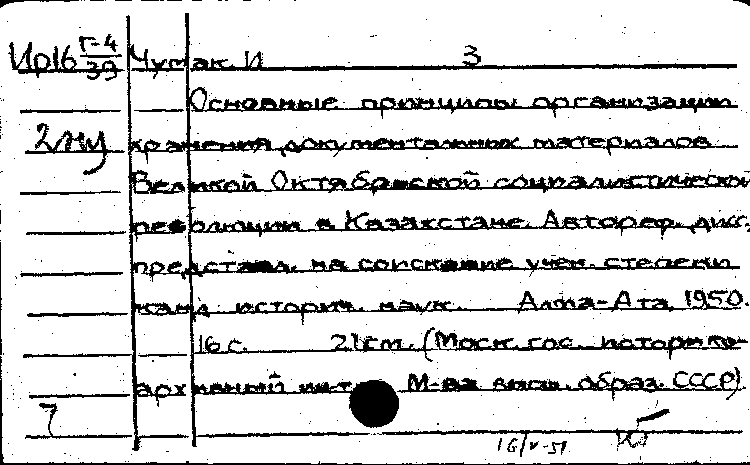 Ир16 Г-4/39 Чумак И 3
Основные принципы организации
2 экз хранения документальных материалов
Великой Октябрьской социалистической
революции в Казахстане. Автореф. дисс.,
представл. на соискание учен. степени
канд. историч. наук. Алма-Ата, 1950.
16 с. 21 см. (Моск. гос. историко-
архивный инт. М-ва высш. образ. СССР)
7
16/V-51